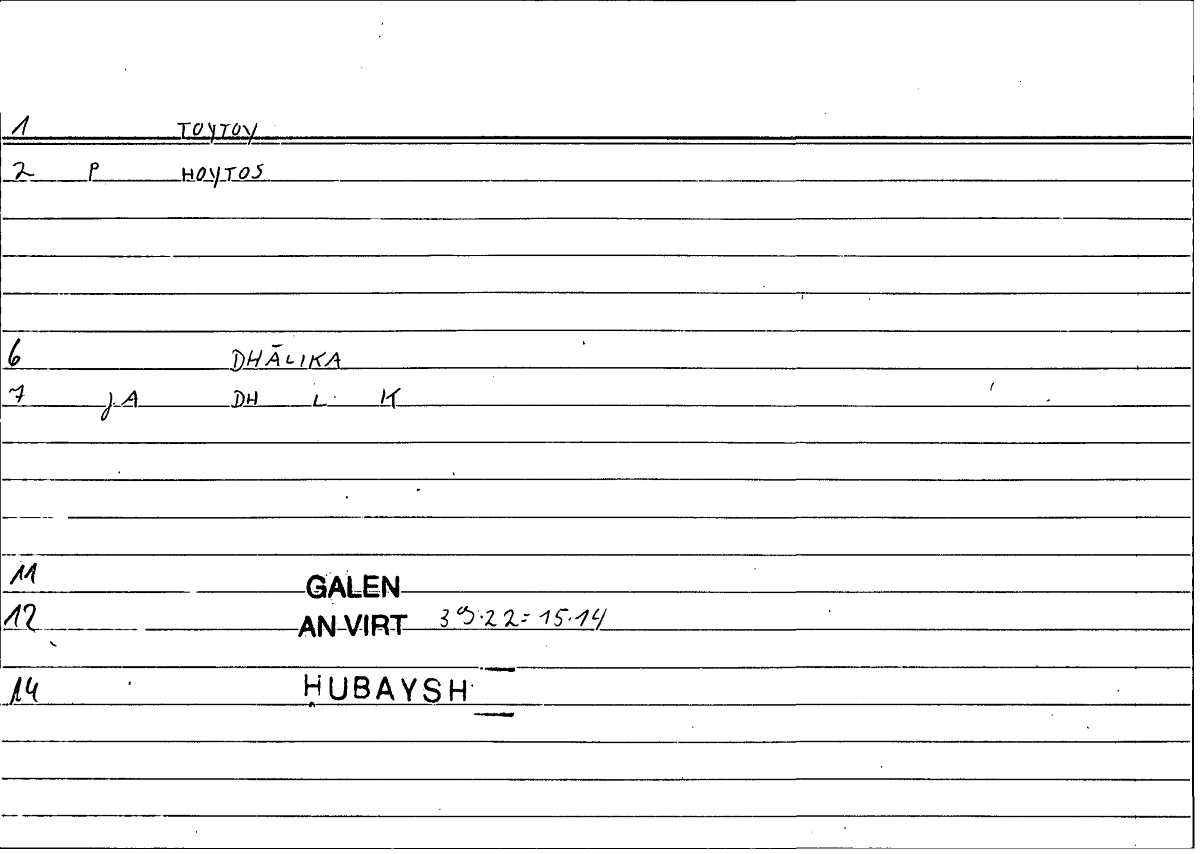 1 TOYTOY
2 P HOYTOS
6 DHĀLIKA
7 JA DH L K
11 GALEN
12 AN VIRT 39.22=15.14
14 ḤUBAYSH